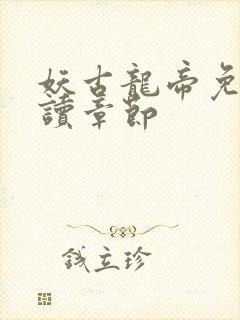 妖古龍帝免
讀章節
錢立珍